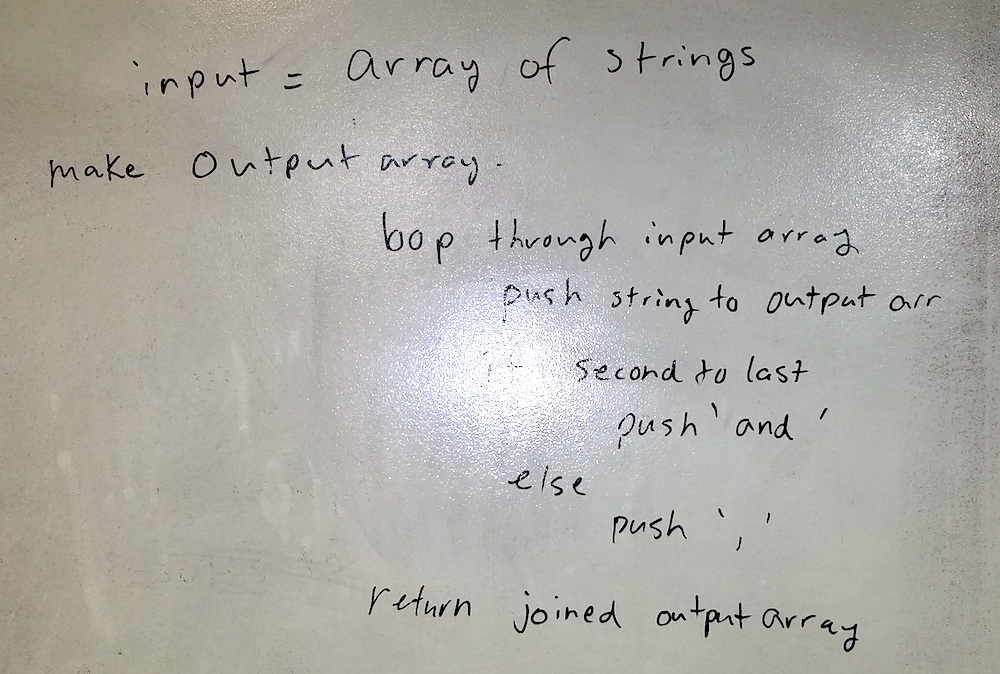 input = array of strings
make Output array.
loop through input array
push string to output arr
second to last
push ' and '
else
push ', '
return joined output array